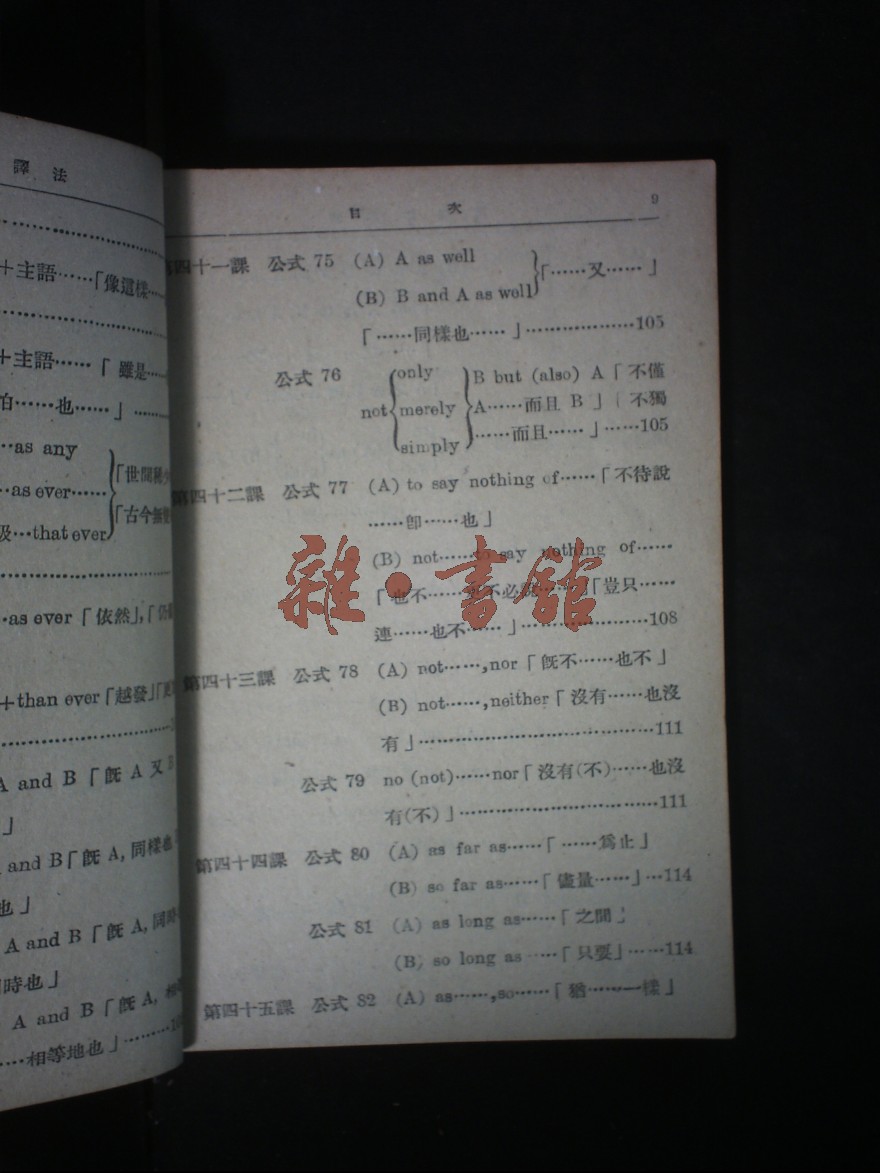 譯法
＋主語……「像這樣……
＋主語……「雖是……
怕……也……」
…as any
…as ever……
「世間稀少
…that ever
「古今無雙
as ever「依然」,「仍
＋than ever「越發」「更
A and B「旣A又B
」
A and B「旣A,同樣也
也」
A and B「旣A,同時
同時也」
A and B「旣A,相
……相等地也」
目次 9
第四十一課 公式 75 (A) A as well
(B) B and A as well
「……又……」
「……同樣也……」……………………105
公式 76
not
only
merely
simply
B but (also) A「不僅
A……而且 B」「不獨
……而且……」……105
第四十二課 公式 77 (A) to say nothing of……「不待說
……卽……也」
(B) not……to say nothing of……
「也不……更不必說……」「豈只……
連……也不……」……………………108
第四十三課 公式 78 (A) not……,nor「旣不……也不」
(B) not……,neither「沒有……也沒
有」…………………………………111
公式 79 no (not)……nor「沒有(不)……也沒
有(不)」………………………………111
第四十四課 公式 80 (A) as far as……「……爲止」
(B) so far as……「儘量……」…114
公式 81 (A) as long as……「之間」
(B) so long as ……「只要」……114
第四十五課 公式 82 (A) as……,so……「猶……一樣」
雜·書館